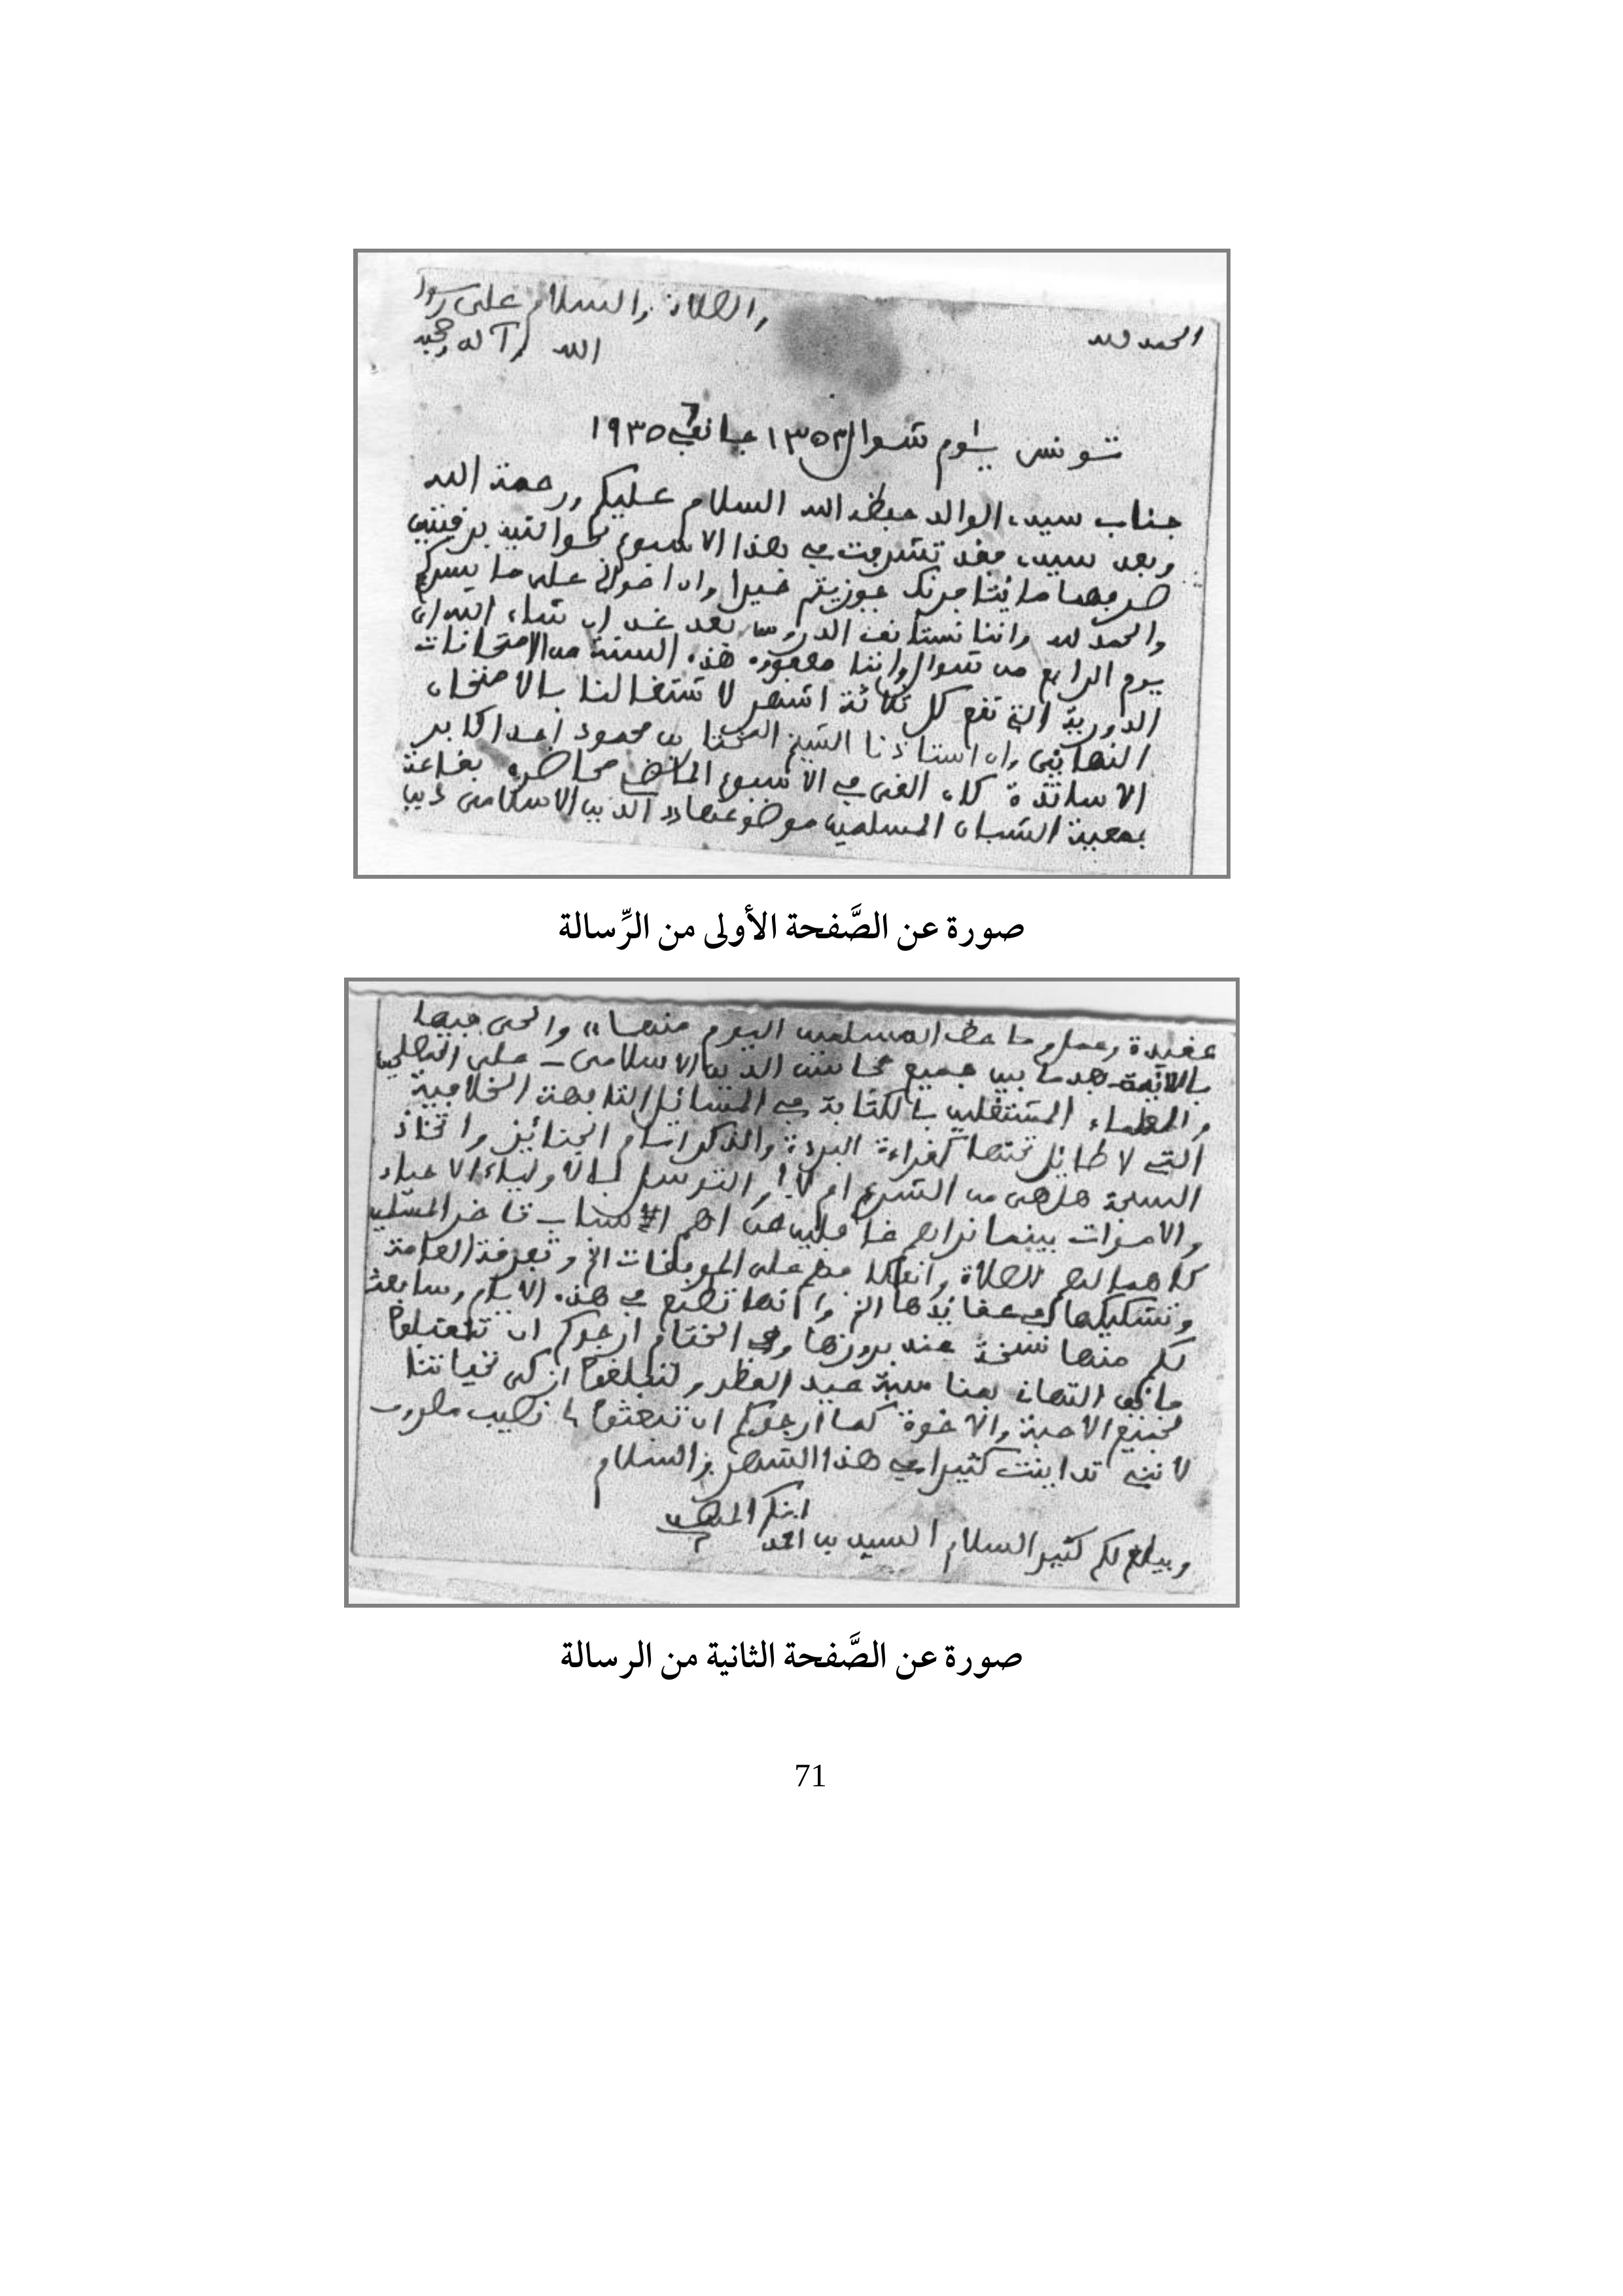 الحمد لله
والصلاة والسلام على رسول
الله وآله وصحبه
تونس يوم 1 شوال ١٣٥٣ جانفي 7 ١٩٣٥
جناب سيدي الوالد حفظه الله السلام عليكم ورحمة الله
وبعد سيدي فقد تشرفت في هذا الاسبوع
فيهما فرنك جوزيتم خيرا وان احوالي على ما يسركم
والحمد لله واننا نستانف الدروس بعد غد ان شاء الله اي
يوم الرابع من شوال واننا هذه السنة من الامتحانات
الدورية التي تقع كل ثلاثة اشهر لاشتغالنا بالامتحان
النهائي وان استاذنا الشيخ المختار بن محمود احد اكابر
الاساتذة كان القى في الاسبوع الماضي محاضرة بقاعة
جمعية الشبان المسلمين موضوعها «الدين الاسلامي دين
صورة عن الصَّفحة الأولى من الرِّسالة
عقيدة وعمل وما حظ المسلمين اليوم منهما» والحى فيها
باللائمة بعدما بين جميع محاسن الدين الاسلامي – على
والعلماء المشتغلين بالكتابة في المسائل التافهة الخلافية
التي لا طايل تحتها كقراءة البردة والذكر امام الجنائز واتخاذ
السبحة هل هي من الشرع ام لا! والتوسل بالاولياء الاحياء
والاموات بينما نراهم غافلين عن اهم الاسباب تاخر المسلمين
كاهمالهم للصلاة وانهماكهم على الموبقات الخ وتعرفة العامة
وتشكيكها في عقايدها الخ وانها تطبع في هذه الايام وسابعث
لكم منها نسخة عند بروزها وفي الختام ارجوكم ان تتقبلوا
فائق التهاني بمناسبة عيد الفطر ولتبلغوا ازكى تحياتنا
لجميع الاحبة والاخوة كما ارجوكم ان تبعثوا لي نصيب
لانني تداينت كثيرا في هذا الشهر والسلام
ابنكم
ويبلغ لكم كثير السلام السيد بن احمد
صورة عن الصَّفحة الثانية من الرسالة
71